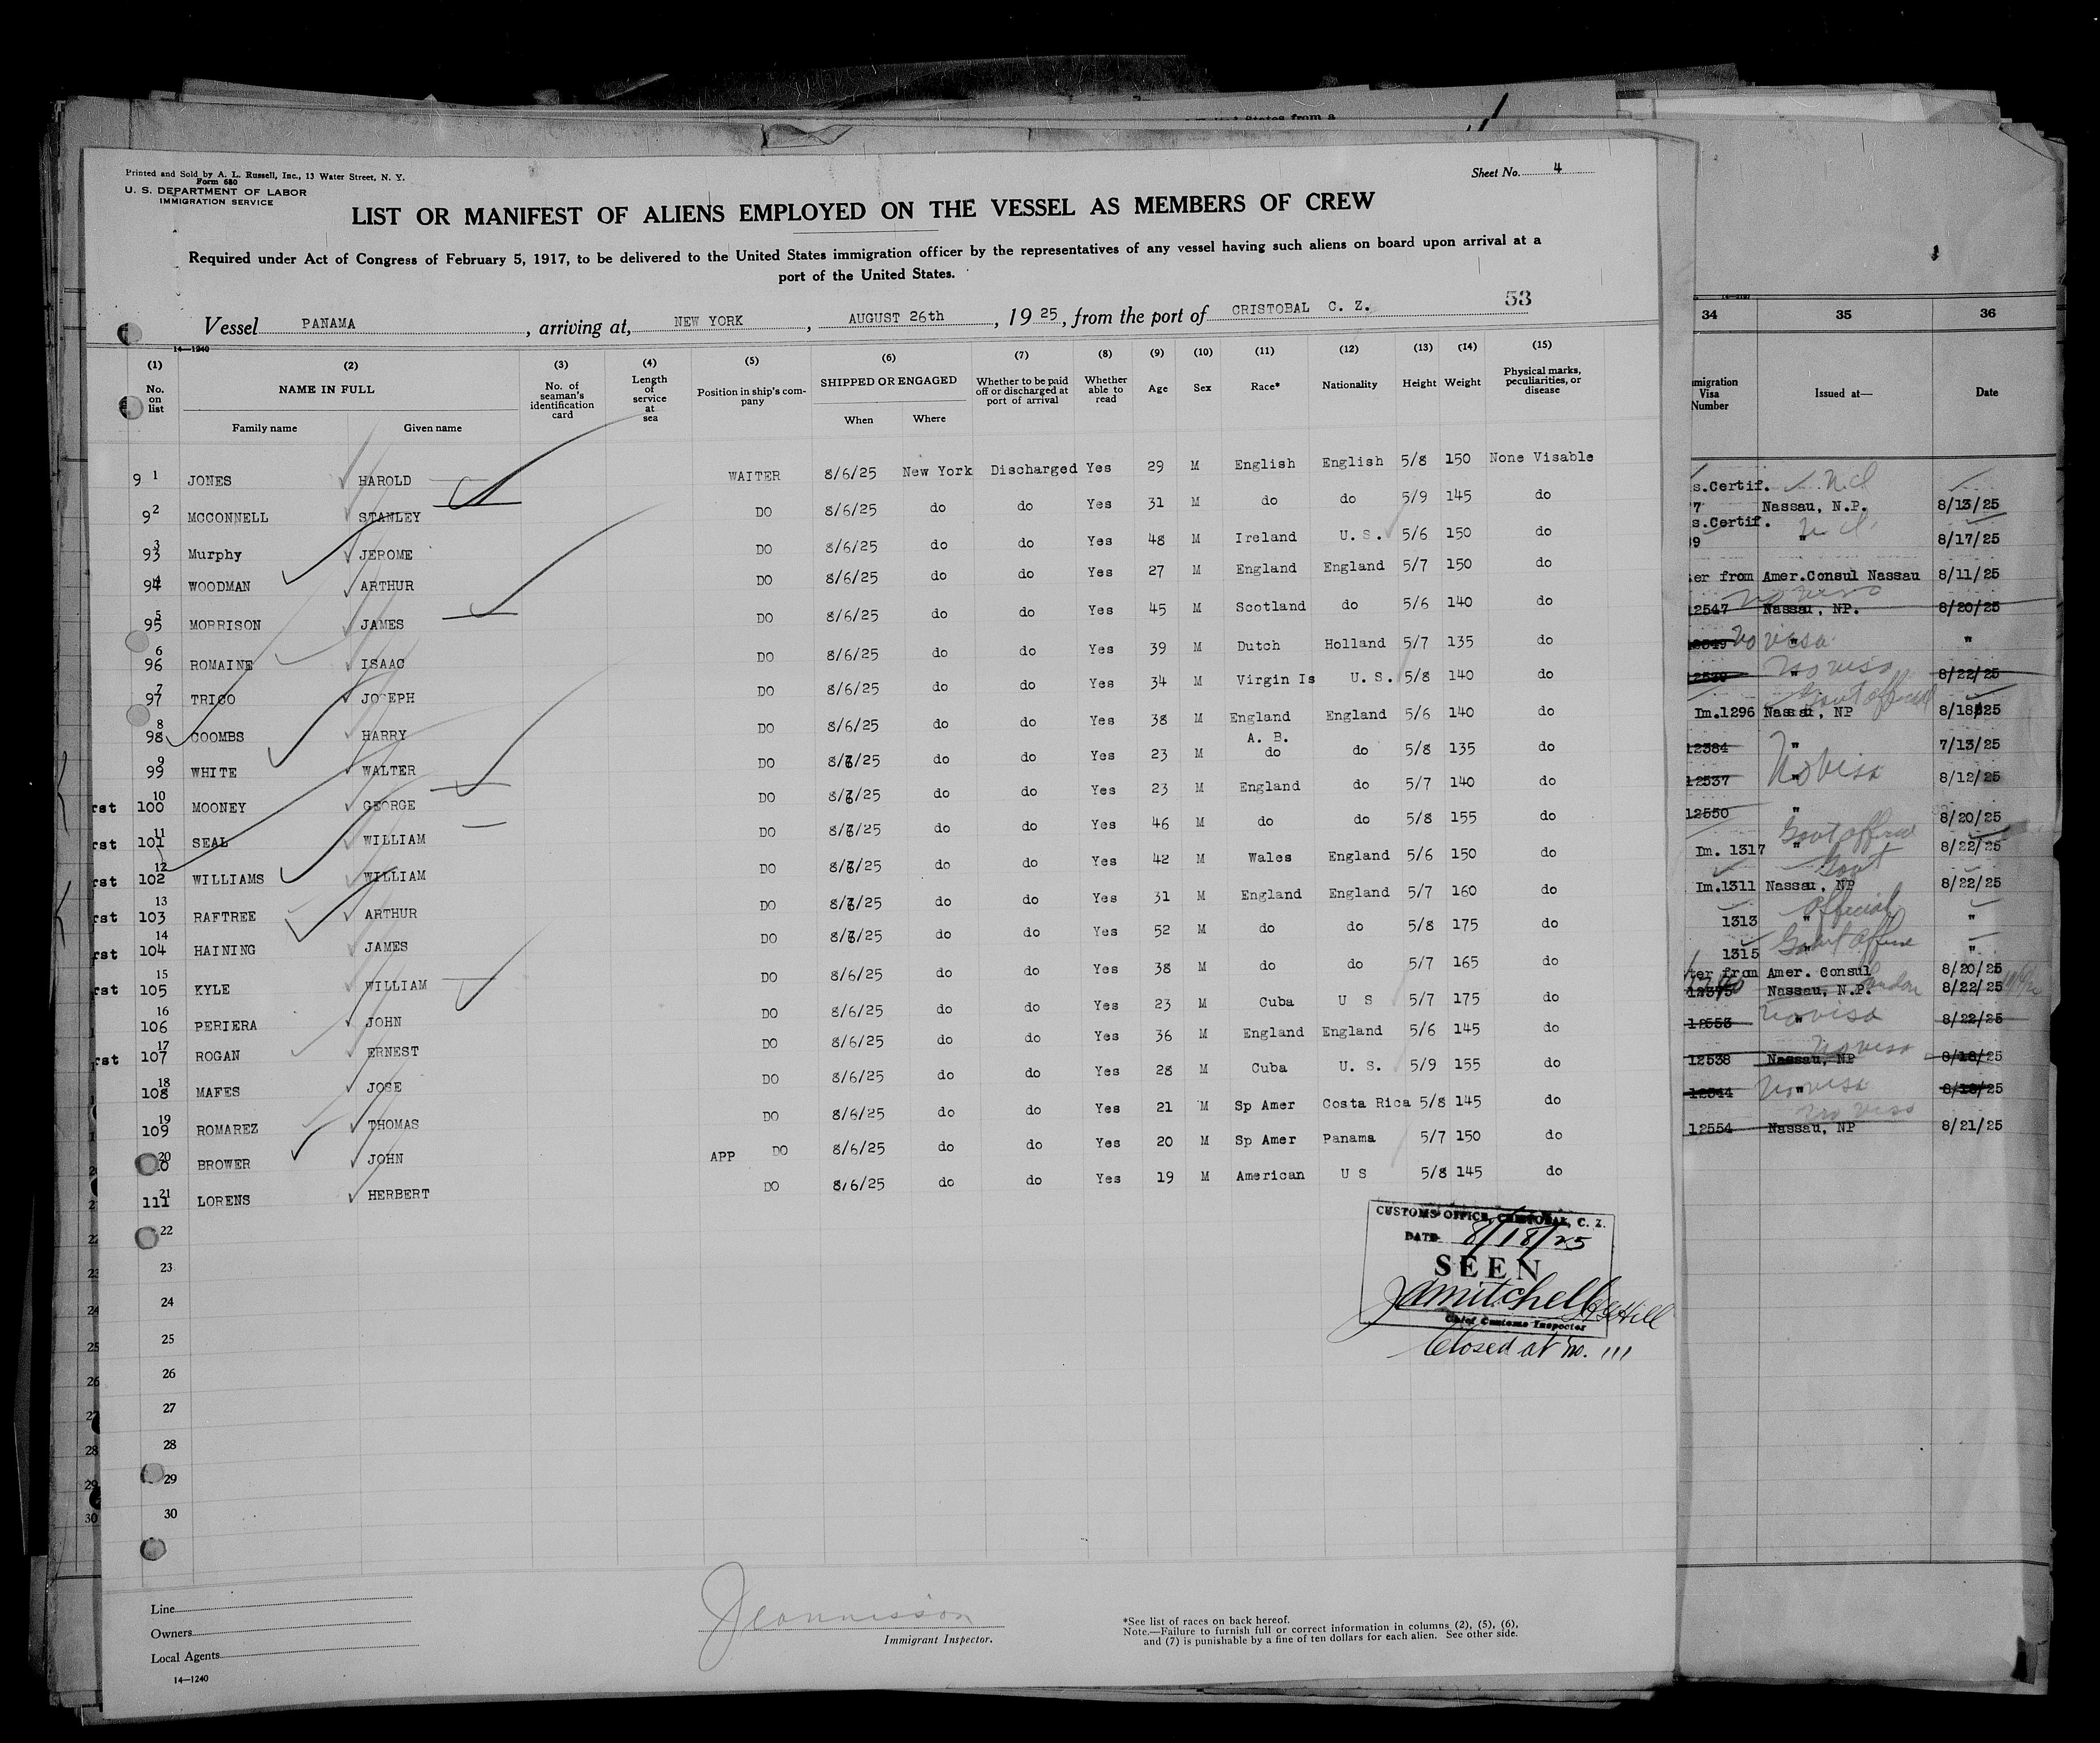 Printed and Sold by A. L. Russell, Inc., 13 Water Street, N. Y.
Form 680
U. S. DEPARTMENT OF LABOR
IMMIGRATION SERVICE
Sheet No. 4
LIST OR MANIFEST OF ALIENS EMPLOYED ON THE VESSEL AS MEMBERS OF CREW
Required under Act of Congress of February 5, 1917, to be delivered to the United States immigration officer by the representatives of any vessel having such aliens on board upon arrival at a
port of the United States.
53
Vessel PANAMA, arriving at, NEW YORK, AUGUST 26th, 1925, from the port of CRISTOBAL C. Z.
14—1240
(1) (2) (3) (4) (5) (6) (7) (8) (9) (10) (11) (12) (13) (14) (15)
No. on list NAME IN FULL No. of seaman's identification card Length of service at sea Position in ship's company SHIPPED OR ENGAGED Whether to be paid off or discharged at port of arrival Whether able to read Age Sex Race* Nationality Height Weight Physical marks, peculiarities, or disease
Family name Given name When Where
9 1 JONES HAROLD WAITER 8/6/25 New York Discharged Yes 29 M English English 5/8 150 None Visable
9 2 MCCONNELL STANLEY DO 8/6/25 do do Yes 31 M do do 5/9 145 do
93 3 Murphy JEROME DO 8/6/25 do do Yes 48 M Ireland U. S. 5/6 150 do
94 WOODMAN ARTHUR DO 8/6/25 do do Yes 27 M England England 5/7 150 do
95 5 MORRISON JAMES DO 8/6/25 do do Yes 45 M Scotland do 5/6 140 do
96 6 ROMAINE ISAAC DO 8/6/25 do do Yes 39 M Dutch Holland 5/7 135 do
97 7 TRIGO JOSEPH DO 8/6/25 do do Yes 34 M Virgin Is U. S. 5/8 140 do
98 8 COOMBS HARRY DO 8/6/25 do do Yes 38 M England England 5/6 140 do
A. B.
99 9 WHITE WALTER DO 8/6/25 do do Yes 23 M do do 5/8 135 do
rst 100 10 MOONEY GEORGE DO 8/6/25 do do Yes 23 M England do 5/7 140 do
rst 101 11 SEAL WILLIAM DO 8/6/25 do do Yes 46 M do do 5/8 155 do
rst 102 12 WILLIAMS WILLIAM DO 8/6/25 do do Yes 42 M Wales England 5/6 150 do
rst 103 13 RAFTREE ARTHUR DO 8/6/25 do do Yes 31 M England England 5/7 160 do
rst 104 14 HAINING JAMES DO 8/6/25 do do Yes 52 M do do 5/8 175 do
rst 105 15 KYLE WILLIAM DO 8/6/25 do do Yes 38 M do do 5/7 165 do
106 16 PERIERA JOHN DO 8/6/25 do do Yes 23 M Cuba U S 5/7 175 do
rst 107 17 ROGAN ERNEST DO 8/6/25 do do Yes 36 M England England 5/6 145 do
108 18 MAFES JOSE DO 8/6/25 do do Yes 28 M Cuba U. S. 5/9 155 do
109 19 ROMAREZ THOMAS DO 8/6/25 do do Yes 21 M Sp Amer Costa Rica 5/8 145 do
20 BROWER JOHN APP DO 8/6/25 do do Yes 20 M Sp Amer Panama 5/7 150 do
111 21 LORENS HERBERT DO 8/6/25 do do Yes 19 M American U S 5/8 145 do
22
23
24
25
26
27
28
29
30
CUSTOMS OFFICE, CRISTOBAL, C. Z.
DATE 8/18/25
SEEN
JAMitchell
Chief Customs Inspector
Closed at no. 111
Line
Owners
Local Agents
14—1240
Immigrant Inspector.
*See list of races on back hereof.
Note.—Failure to furnish full or correct information in columns (2), (5), (6),
and (7) is punishable by a fine of ten dollars for each alien. See other side.
34 35 36
mmigration Visa Number Issued at— Date
s.Certif.
7 Nassau, N.P. 8/13/25
s.Certif.
9 " 8/17/25
ter from Amer.Consul Nassau 8/11/25
12547 Nassau, NP. 8/20/25
No visa "
" 8/22/25
Im.1296 Nassau, NP 8/18/25
12384 " 7/13/25
12537 No visa 8/12/25
12550 " 8/20/25
Govt official
Im. 1317 " 8/22/25
Govt
Im.1311 Nassau, NP 8/22/25
Official
1313 " "
1315 " "
ter from Amer. Consul 8/20/25
12375 Nassau, N.P. London 8/22/25
12553 No visa 8/22/25
No visa
12538 Nassau, NP 8/18/25
12544 No visa 8/18/25
No visa
12554 Nassau, NP 8/21/25